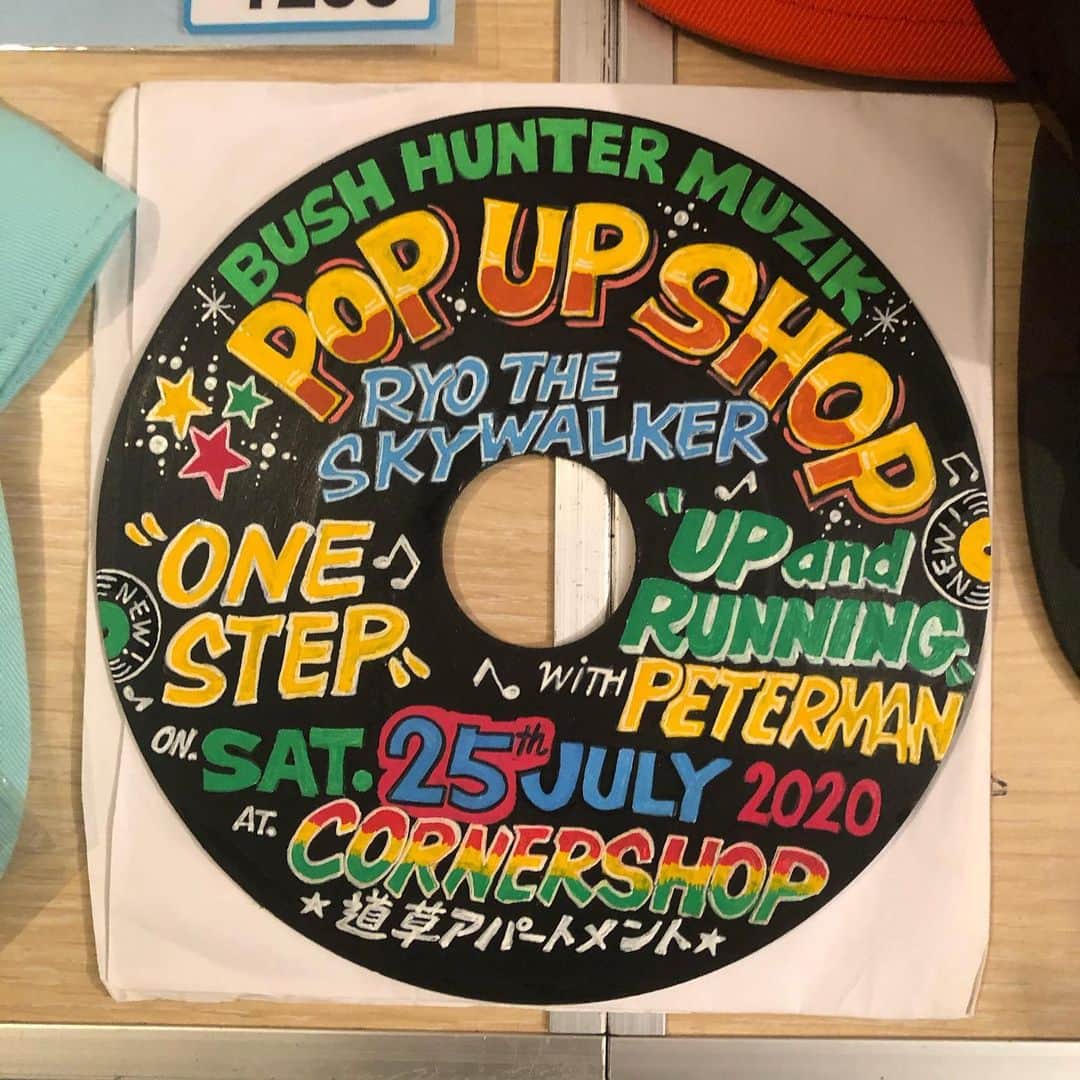 BUSH HUNTER MUZIK
POP UP SHOP
RYO THE
SKYWALKER
"ONE
STEP"
"UP and
RUNNING"
WITH PETERMAN
NEW!
NEW!
ON. SAT. 25th JULY 2020
AT. CORNERSHOP
★道草アパートメント★